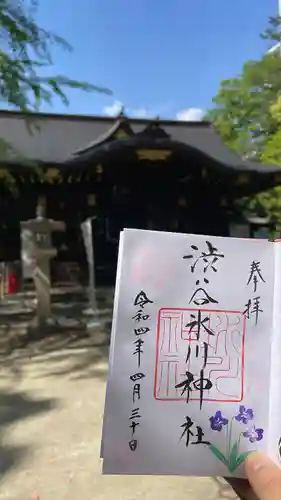 奉拝
渋谷氷川神社
令和四年四月三十日